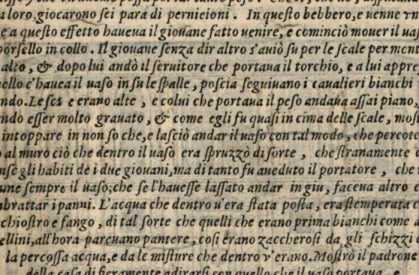 a loro, giocarono sei para di pernicioni. In questo bebbero, e venne v
e a questo effetto haueua il giouane fatto venire, e cominciò mouer il va
orsello in collo. Il giouane senza dir altro s'auiò su per le scale per men
alto, & dopo lui andò il seruitore che portaua il torchio, e a lui appre
ello c'hauea il vaso in su le spalle, poscia seguiuano i caualieri bianchi
ndo. Le scale erano alte, e colui che portaua il peso andaua assai piano,
ndo esser molto grauato, & come egli fu quasi in cima delle scale, mos
intoppare in non so che, e lasciò andar il vaso con tal modo, che percote
o al muro ciò che dentro il vaso era spruzzò di sorte, che stranamente c
nse gli habiti de i due giouani, ma di tanto fu aueduto il portatore, che
une sempre il vaso; che se l'hauesse lassato andar in giu, faceua altro c
brattar i panni. L'acqua che dentro v'era stata posta, era stemperata c
chiostro e fango, di tal sorte che quelli che erano prima bianchi come a
ellini, all'hora pareuano pantere, così erano zaccherosi da gli schizzi
la percossa acqua, e da le misture che dentro v'erano. Mostrò il padron
della casa di fieramente adirarsi con quello che il vaso portaua